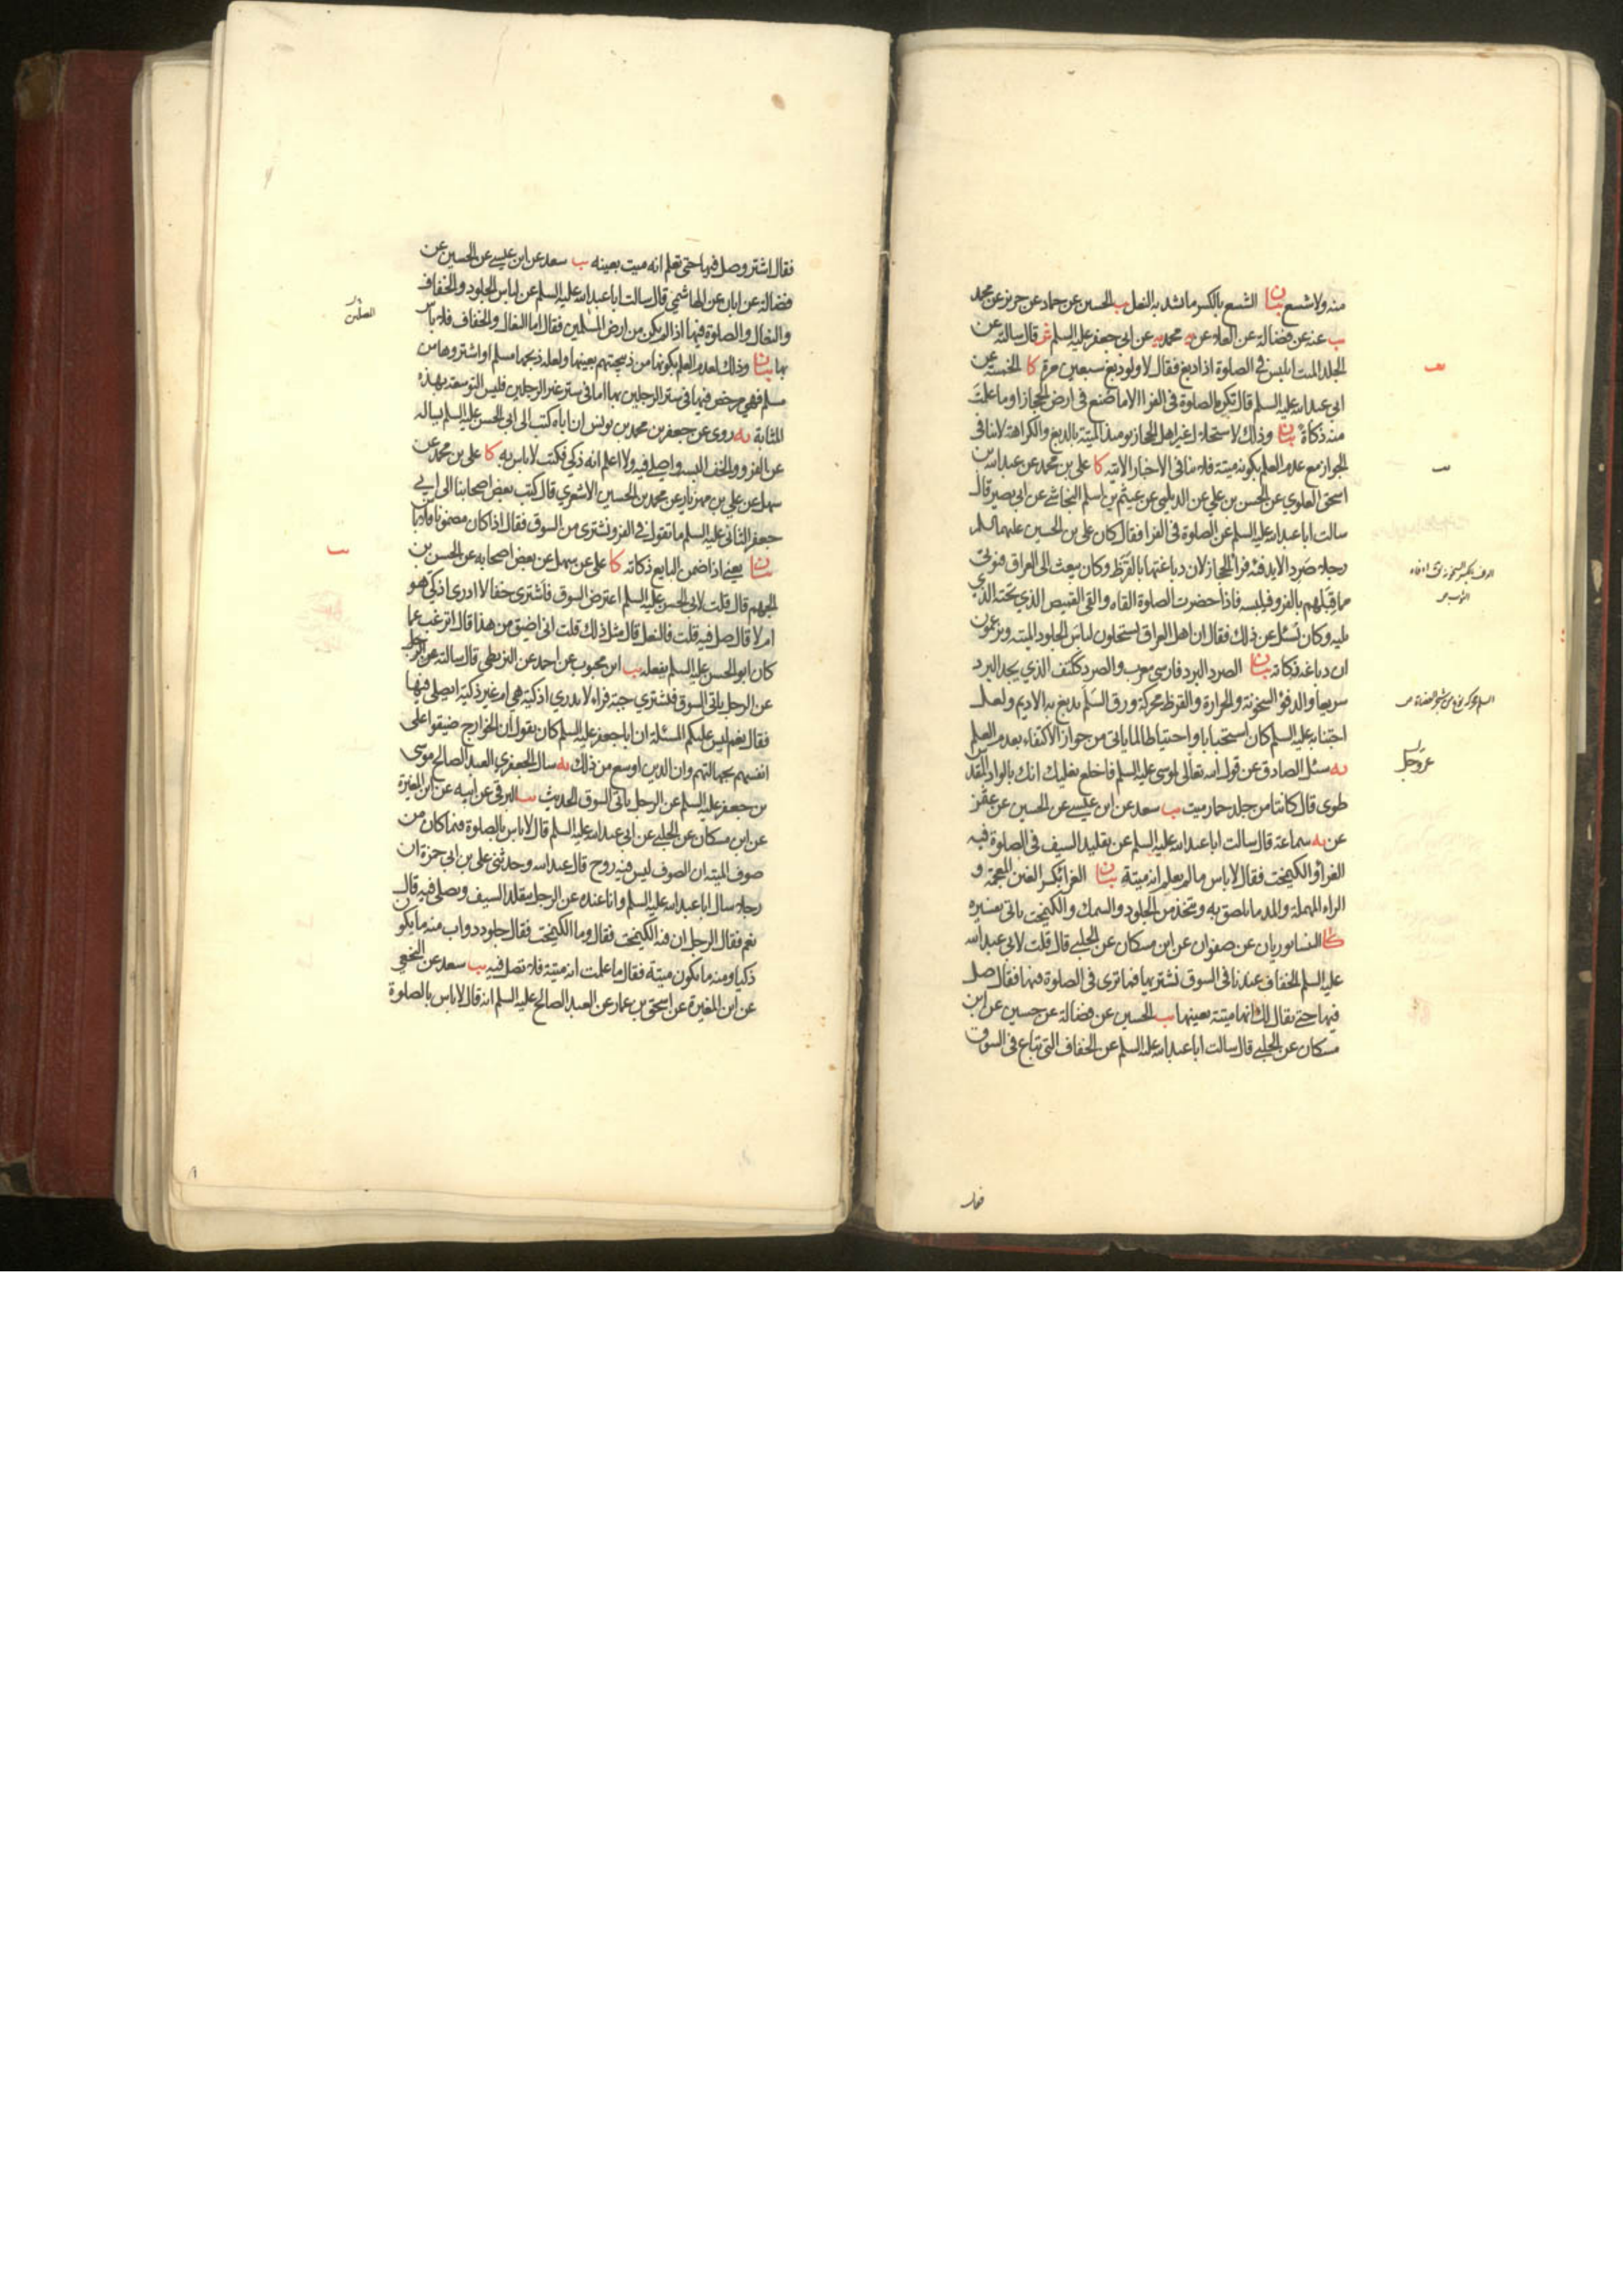 منه ولا شسع بيان الشسع بالكسر ما يشد به النعل يب الحسين عن حماد عن حريز عن محمد
يب عنه عن فضالة عن العلاء عن محمد عن ابي جعفر عليه السلم قال سالته عن
الجلد الميت ايلبس في الصلوة اذا دبغ فقال لا ولو دبغ سبعين مرة كا الخمسة عن
ابي عبدالله عليه السلم قال تكره الصلوة في الفرا الا ما صنع في ارض الحجاز او ما علمت
منه ذكاة بيان وذلك لاستحلال غير اهل الحجاز يومئذ الميتة بالدبغ والكراهة لا ينافي
الجواز مع عدم العلم بكونه ميتة فلا ينافي الاخبار الاتية كا علي بن محمد عن عبد الله بن
اسحق العلوي عن الحسن بن علي عن الديلمي عن عيثم بن اسلم النجاشي عن ابي بصير قال
سالت ابا عبدالله عليه السلم عن الصلوة في الفرا فقال كان علي بن الحسين عليهما السلم
رجلا صردا لا يدفئه فرا الحجاز لان دباغتها بالقرظ وكان يبعث الى العراق فيؤتى
مما قبلهم بالفرو فيلبسه فاذا حضرت الصلوة القاه والقى القميص الذي تحته الذي
يليه وكان يسئل عن ذلك فقال ان اهل العراق يستحلون لباس الجلود الميتة ويزعمون
ان دباغه ذكاته بيان الصرد البرد فارسي معرب والصرد ككتف الذي يجد البرد
سريعا والدفؤ السخونة والحرارة والقرظ محركة ورق السلم يدبغ به الاديم ولعل
اجتنابه عليه السلم كان استحبابا واحتياطا لما ياتي من جواز الاكتفاء بعدم العلم
يه سئل الصادق عن قول الله تعالى لموسى عليه السلم فاخلع نعليك انك بالواد المقدس
طوى قال كانتا من جلد حمار ميت يب سعد عن ابن عيسى عن الحسين عن عثمن
عن يه سماعة قال سالت ابا عبدالله عليه السلم عن تقليد السيف في الصلوة فيه
الفراؤ والكيمخت فقال لا باس ما لم يعلم انه ميتة بيان الغرا بكسر الغين المعجمة و
الراء المهملة والمد ما يلصق به ويتخذ من الجلود والسمك والكيمخت ياتي تفسيره
كا النيسابوريان عن صفوان عن ابن مسكان عن الحلبي قال قلت لابي عبدالله
عليه السلم الخفاف عندنا في السوق نشتريها فما ترى في الصلوة فيها فقال صل
فيها حتى يقال لك انها ميتة بعينها يب الحسين عن فضالة عن حسين عن ابن
مسكان عن الحلبي قال سالت ابا عبدالله عليه السلم عن الخفاف التي تباع في السوق
عز وجل
فقال
فقال اشتر وصل فيها حتى تعلم انه ميت بعينه يب سعد عن ابن عيسى عن الحسين عن
فضالة عن ابان عن الهاشمي قال سالت ابا عبدالله عليه السلم عن لباس الجلود والخفاف
والنعال والصلوة فيها اذا لم يكن من ارض المسلمين فقال اما النعال والخفاف فلا باس
بها بيان وذلك لعدم العلم بكونها من ذبيحتهم بعينها ولعله ذبحها مسلم او اشتروها من
مسلم فهي مرخص فيها في ستر الرجلين بها اما في ستر غير الرجلين فليس التوسعة بهذه
المثابة يه روى عن جعفر بن محمد بن يونس ان اباه كتب الى ابي الحسن عليه السلم يساله
عن الفرو والخف البسه واصلي فيه ولا اعلم انه ذكي فكتب لا باس به كا علي بن محمد عن
سهل عن علي بن مهزيار عن محمد بن الحسين الاشعري قال كتب بعض اصحابنا الى ابي
جعفر الثاني عليه السلم ما تقول في الفرو يشترى من السوق فقال اذا كان مضمونا فلا باس
بيان يعني اذا ضمن البايع ذكاته كا علي عن سهل عن بعض اصحابه عن الحسن بن
الجهم قال قلت لابي الحسن عليه السلم اعترض السوق فاشترى خفا لا ادرى اذكي هو
ام لا قال صل فيه قلت فالنعل قال مثل ذلك قلت اني اضيق من هذا قال اترغب عما
كان ابو الحسن عليه السلم يفعله يب ابن محبوب عن احمد عن البزنطي قال سالته عن الرجل
عن الرجل ياتي السوق فيشتري جبة فراء لا يدري اذكية هي ام غير ذكية ايصلي فيها
فقال نعم ليس عليكم المسئلة ان ابا جعفر عليه السلم كان يقول ان الخوارج ضيقوا على
انفسهم بجهالتهم وان الدين اوسع من ذلك يه سال الجعفري العبد الصالح موسى
بن جعفر عليه السلم عن الرجل ياتي السوق الحديث يب البرقي عن ابيه عن ابن المغيرة
عن ابن مسكان عن الحلبي عن ابي عبدالله عليه السلم قال لا باس بالصلوة فيما كان من
صوف الميتة ان الصوف ليس فيه روح قال عبدالله وحدثني علي بن ابي حمزة ان
رجلا سال ابا عبدالله عليه السلم وانا عنده عن الرجل يتقلد السيف ويصلي فيه قال
نعم فقال الرجل ان فيه الكيمخت فقال وما الكيمخت فقال جلود دواب منه ما يكون
ذكيا ومنه ما يكون ميتة فقال ما علمت انه ميتة فلا تصل فيه يب سعد عن النخعي
عن ابن المغيرة عن اسحق بن عمار عن العبد الصالح عليه السلم انه قال لا باس بالصلوة